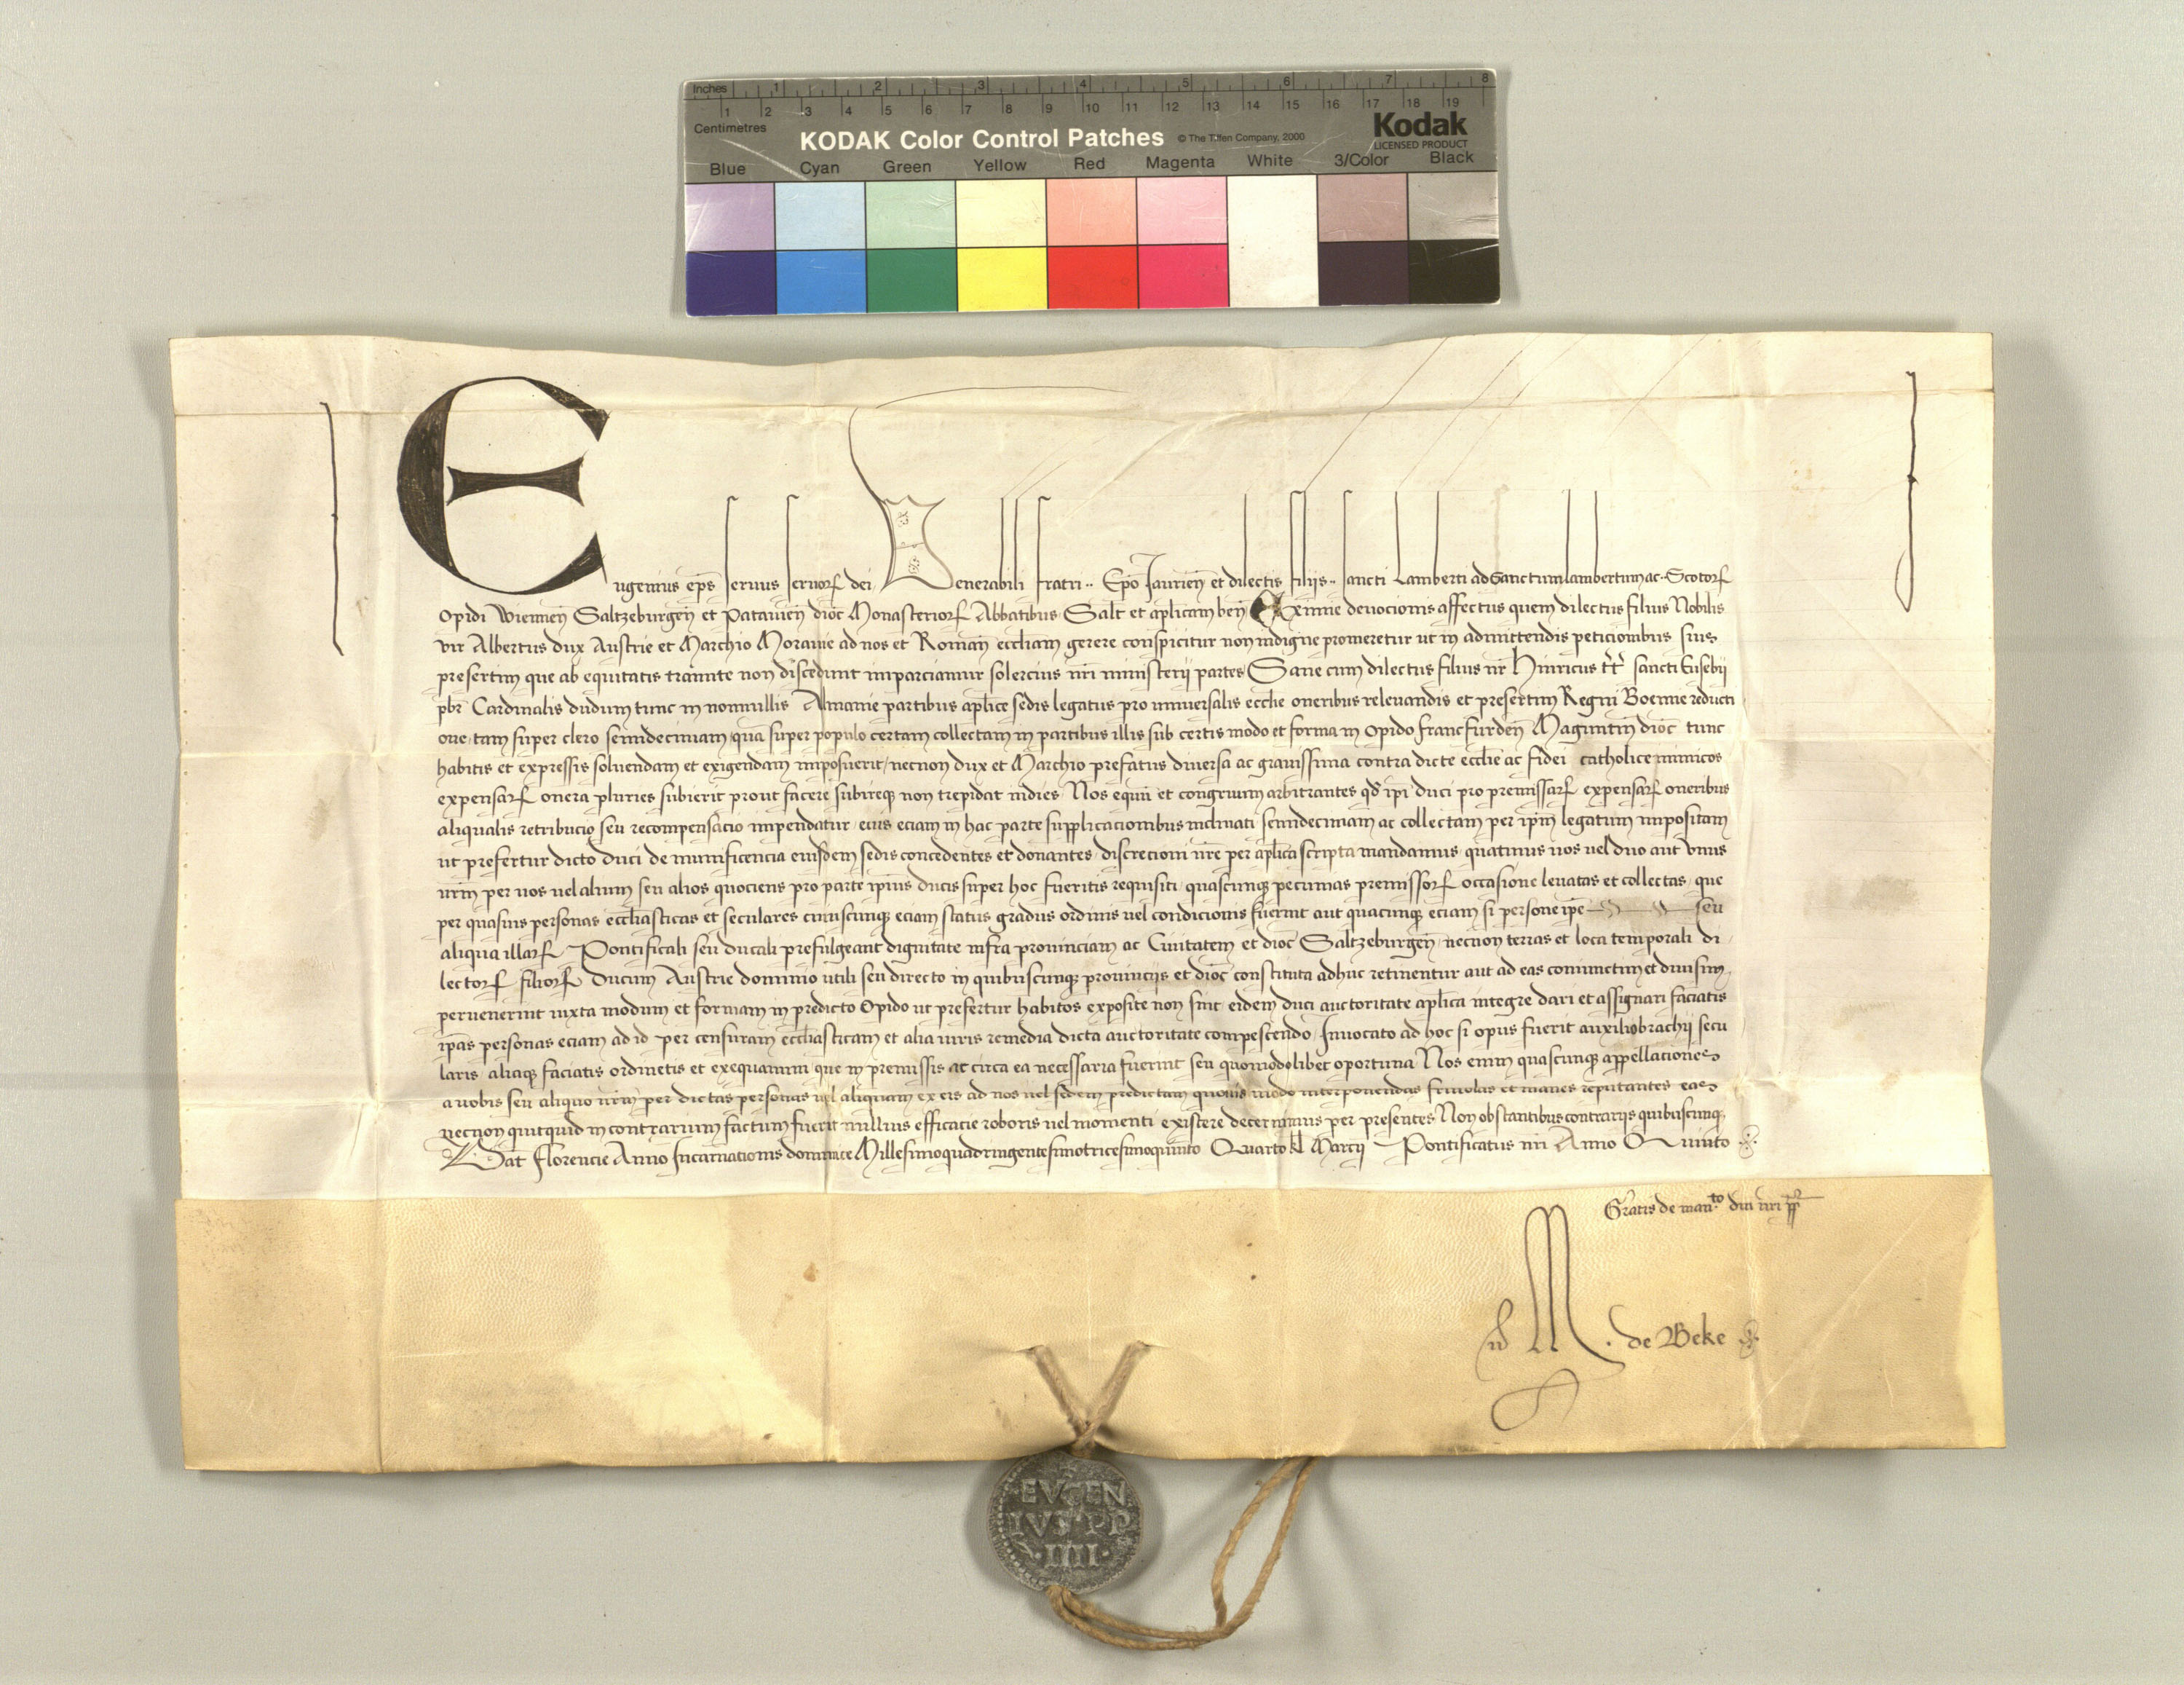 Inches 1 2 3 4 5 6 7 8
1 2 3 4 5 6 7 8 9 10 11 12 13 14 15 16 17 18 19
Centimetres
KODAK Color Control Patches © The Tiffen Company, 2000 Kodak
LICENSED PRODUCT
Blue Cyan Green Yellow Red Magenta White 3/Color Black
Eugenius ep̄s seruus seruoꝝ dei Venerabili fratri ·· Ep̄o Jaurien̄ et dilectis filijs ·· sancti Lamberti ad Sanctum lambertum ac ·· Scotoꝝ
Opidi Wiennen̄ Saltzeburgen̄ et Patauien̄ dioc̄ Monasterioꝝ Abbatibus Salt̄ et ap̄licam ben̄ Eximie deuocionis affectus quem dilectus filius Nobilis
vir Albertus dux Austrie et Marchio Morauie ad nos et Roman̄ eccl̄iam gerere conspicitur non indigne promeretur ut in admittendis peticionibus suis
presertim que ab equitatis tramite non discedunt imparciamur solercius nr̄i ministerij partes Sane cum dilectus filius nr̄ Hinricus tt̄ sancti Eusebij
pbr̄ Cardinalis dudum tunc in nonnullis Almanie partibus ap̄lice sedis legatus pro vniuersalis eccl̄ie oneribus releuandis et presertim Regni Boemie reducti
one tam super clero semidecimam quā super populo certam collectam in partibus illis sub certis modo et forma in Opido francfurden̄ Maguntin̄ dioc̄ tunc
habitis et expressis soluendam et exigendam imposuerit necnon dux et Marchio prefatus diuersa ac grauissima contra dicte eccl̄ie ac fidei catholice inimicos
expensaꝝ onera pluries subierit prout facere subireqꝫ non trepidat indies Nos equū et congruum arbitrantes qd̄ ip̄i duci pro premissaꝝ expensaꝝ oneribus
aliqualis retribucio seu recompensacio impendatur eius eciam in hac parte supplicacionibus inclinati semidecimam ac collectam per ip̄m legatum impositam
ut prefertur dicto duci de munificencia eiusdem sedis concedentes et donantes discrecioni ur̄e per ap̄lica scripta mandamus quatinus vos vel duo aut vnus
ur̄m per vos vel alium seu alios quociens pro parte ip̄ius ducis super hoc fueritis requisiti quascunqꝫ pecunias premissoꝝ occasione leuatas et collectas que
per quasuis personas eccl̄iasticas et seculares cuiuscunqꝫ eciam status gradus ordinis vel condicionis fuerint aut quacunqꝫ eciam si persone ip̄e seu
aliqua illaꝝ Pontificali seu ducali prefulgeant dignitate infra prouinciam ac Ciuitatem et dioc̄ Saltzeburgen̄ necnon terras et loca temporali di
lectoꝝ filioꝝ Ducum Austrie dominio utili seu directo in quibuscunqꝫ prouincijs et dioc̄ constituta adhuc retinentur aut ad eas coniunctim et diuisim
peruenerint iuxta modum et formam in predicto Opido ut prefertur habitos exposite non sint eidem duci auctoritate ap̄lica integre dari et assignari faciatis
ip̄as personas eciam ad id per censuram eccl̄iasticam et alia iuris remedia dicta auctoritate compescendo Inuocato ad hoc si opus fuerit auxilio brachij secu
laris aliaqꝫ faciatis ordinetis et exequamini que in premissis ac circa ea necessaria fuerint seu quomodolibet oportuna Nos enim quascunqꝫ appellaciones
a vobis seu aliquo ur̄m per dictas personas vel aliquam ex eis ad nos vel sedem predictam quouis modo interponendas friuolas et inanes reputantes eas
necnon quitquid in contrarium factum fuerit nullius efficacie roboris vel momenti existere decernimus per presentes Non obstantibus contrarijs quibuscunqꝫ
Dat̄ Florencie Anno Incarnacionis dominice Millesimoquadringentesimotricesimoquinto Quarto kl̄ Marcij Pontificatus nr̄i Anno Quinto
Gratis de man.to dn̄i nr̄i pp̄
M. de Beke
EVGEN
IVS PP
·IIII·